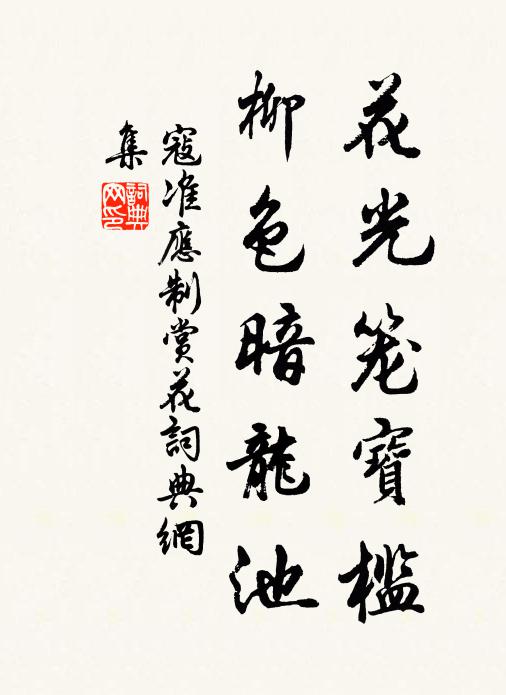 花光笼寶檻
柳色暗龍池
寇准應制賞花詞典網
集
詞典網印